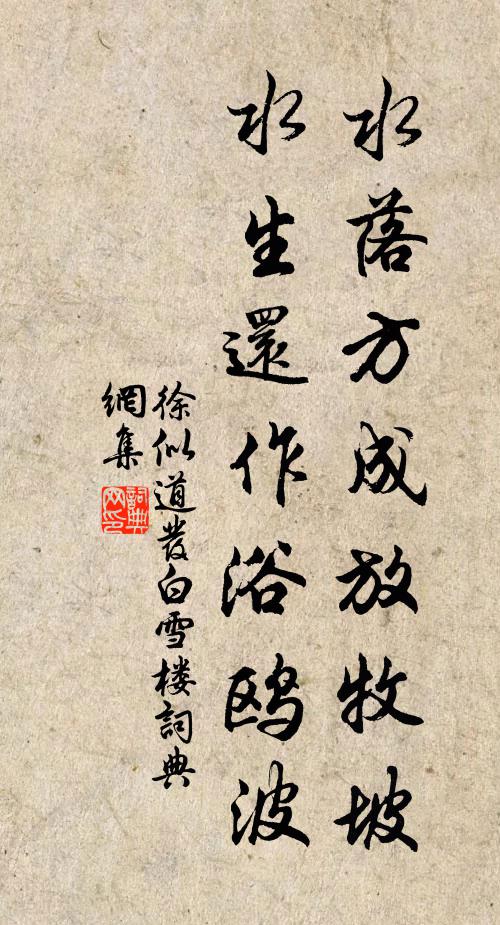 水落方成放牧坡
水生還作浴鸥波
徐似道發白雪楼詞典
網集
詞典网印